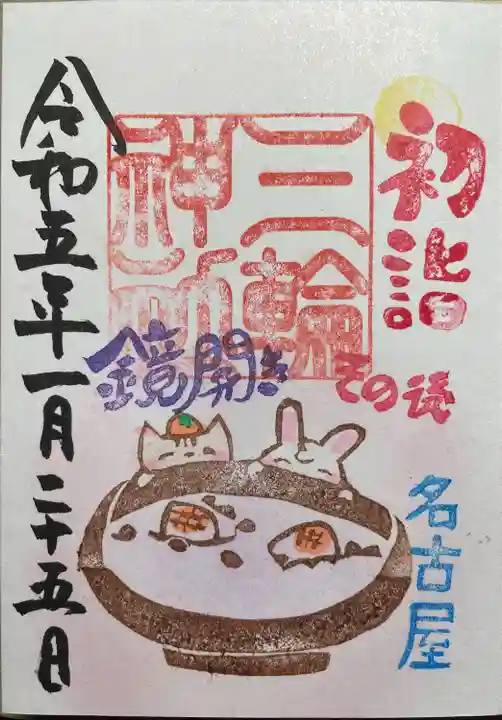 初詣
その後
三輪
神社
鏡開き
名古屋
令和五年一月二十五日